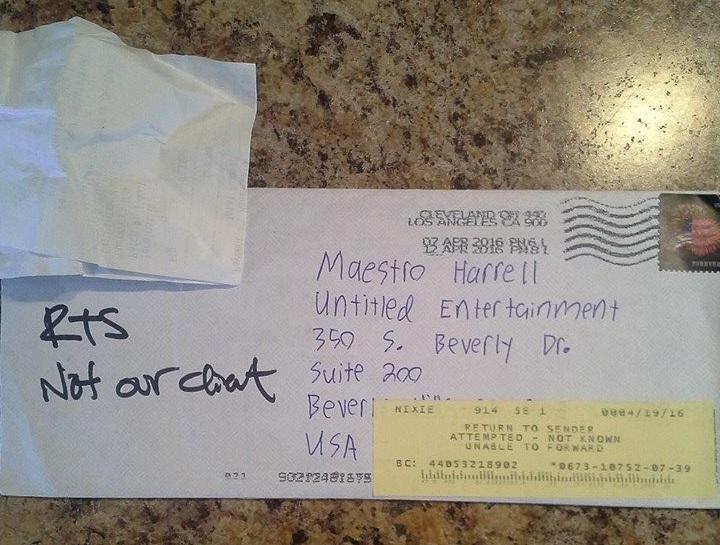 CLEVELAND OH 440
LOS ANGELES CA 900
07 APR 2016 PM 6 L
12 APR 2016 PM 8 L
FOREVER
Maestro Harrell
Untitled Entertainment
350 S. Beverly Dr.
Suite 200
Beverl
USA
RTS
Not our client
NIXIE 914 SE 1 0004/19/16
RETURN TO SENDER
ATTEMPTED - NOT KNOWN
UNABLE TO FORWARD
BC: 44053218902 *0673-10752-07-39
021